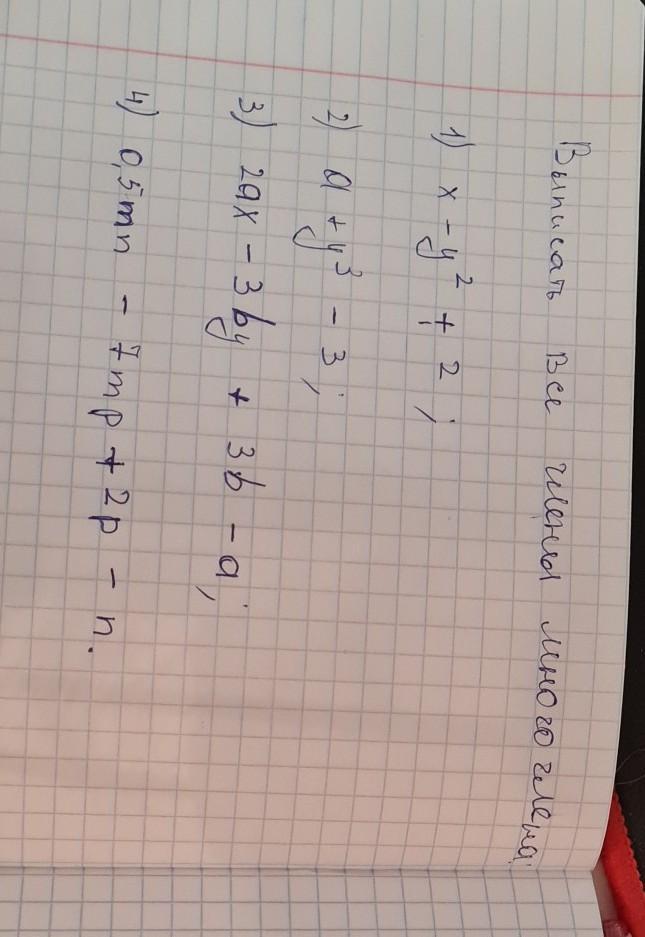 Выписать все члены многочлена:
1) x - y² + 2 ;
2) a + y³ - 3 ;
3) 2ax - 3by + 3b - a ;
4) 0,5mn - 7mp + 2p - n.